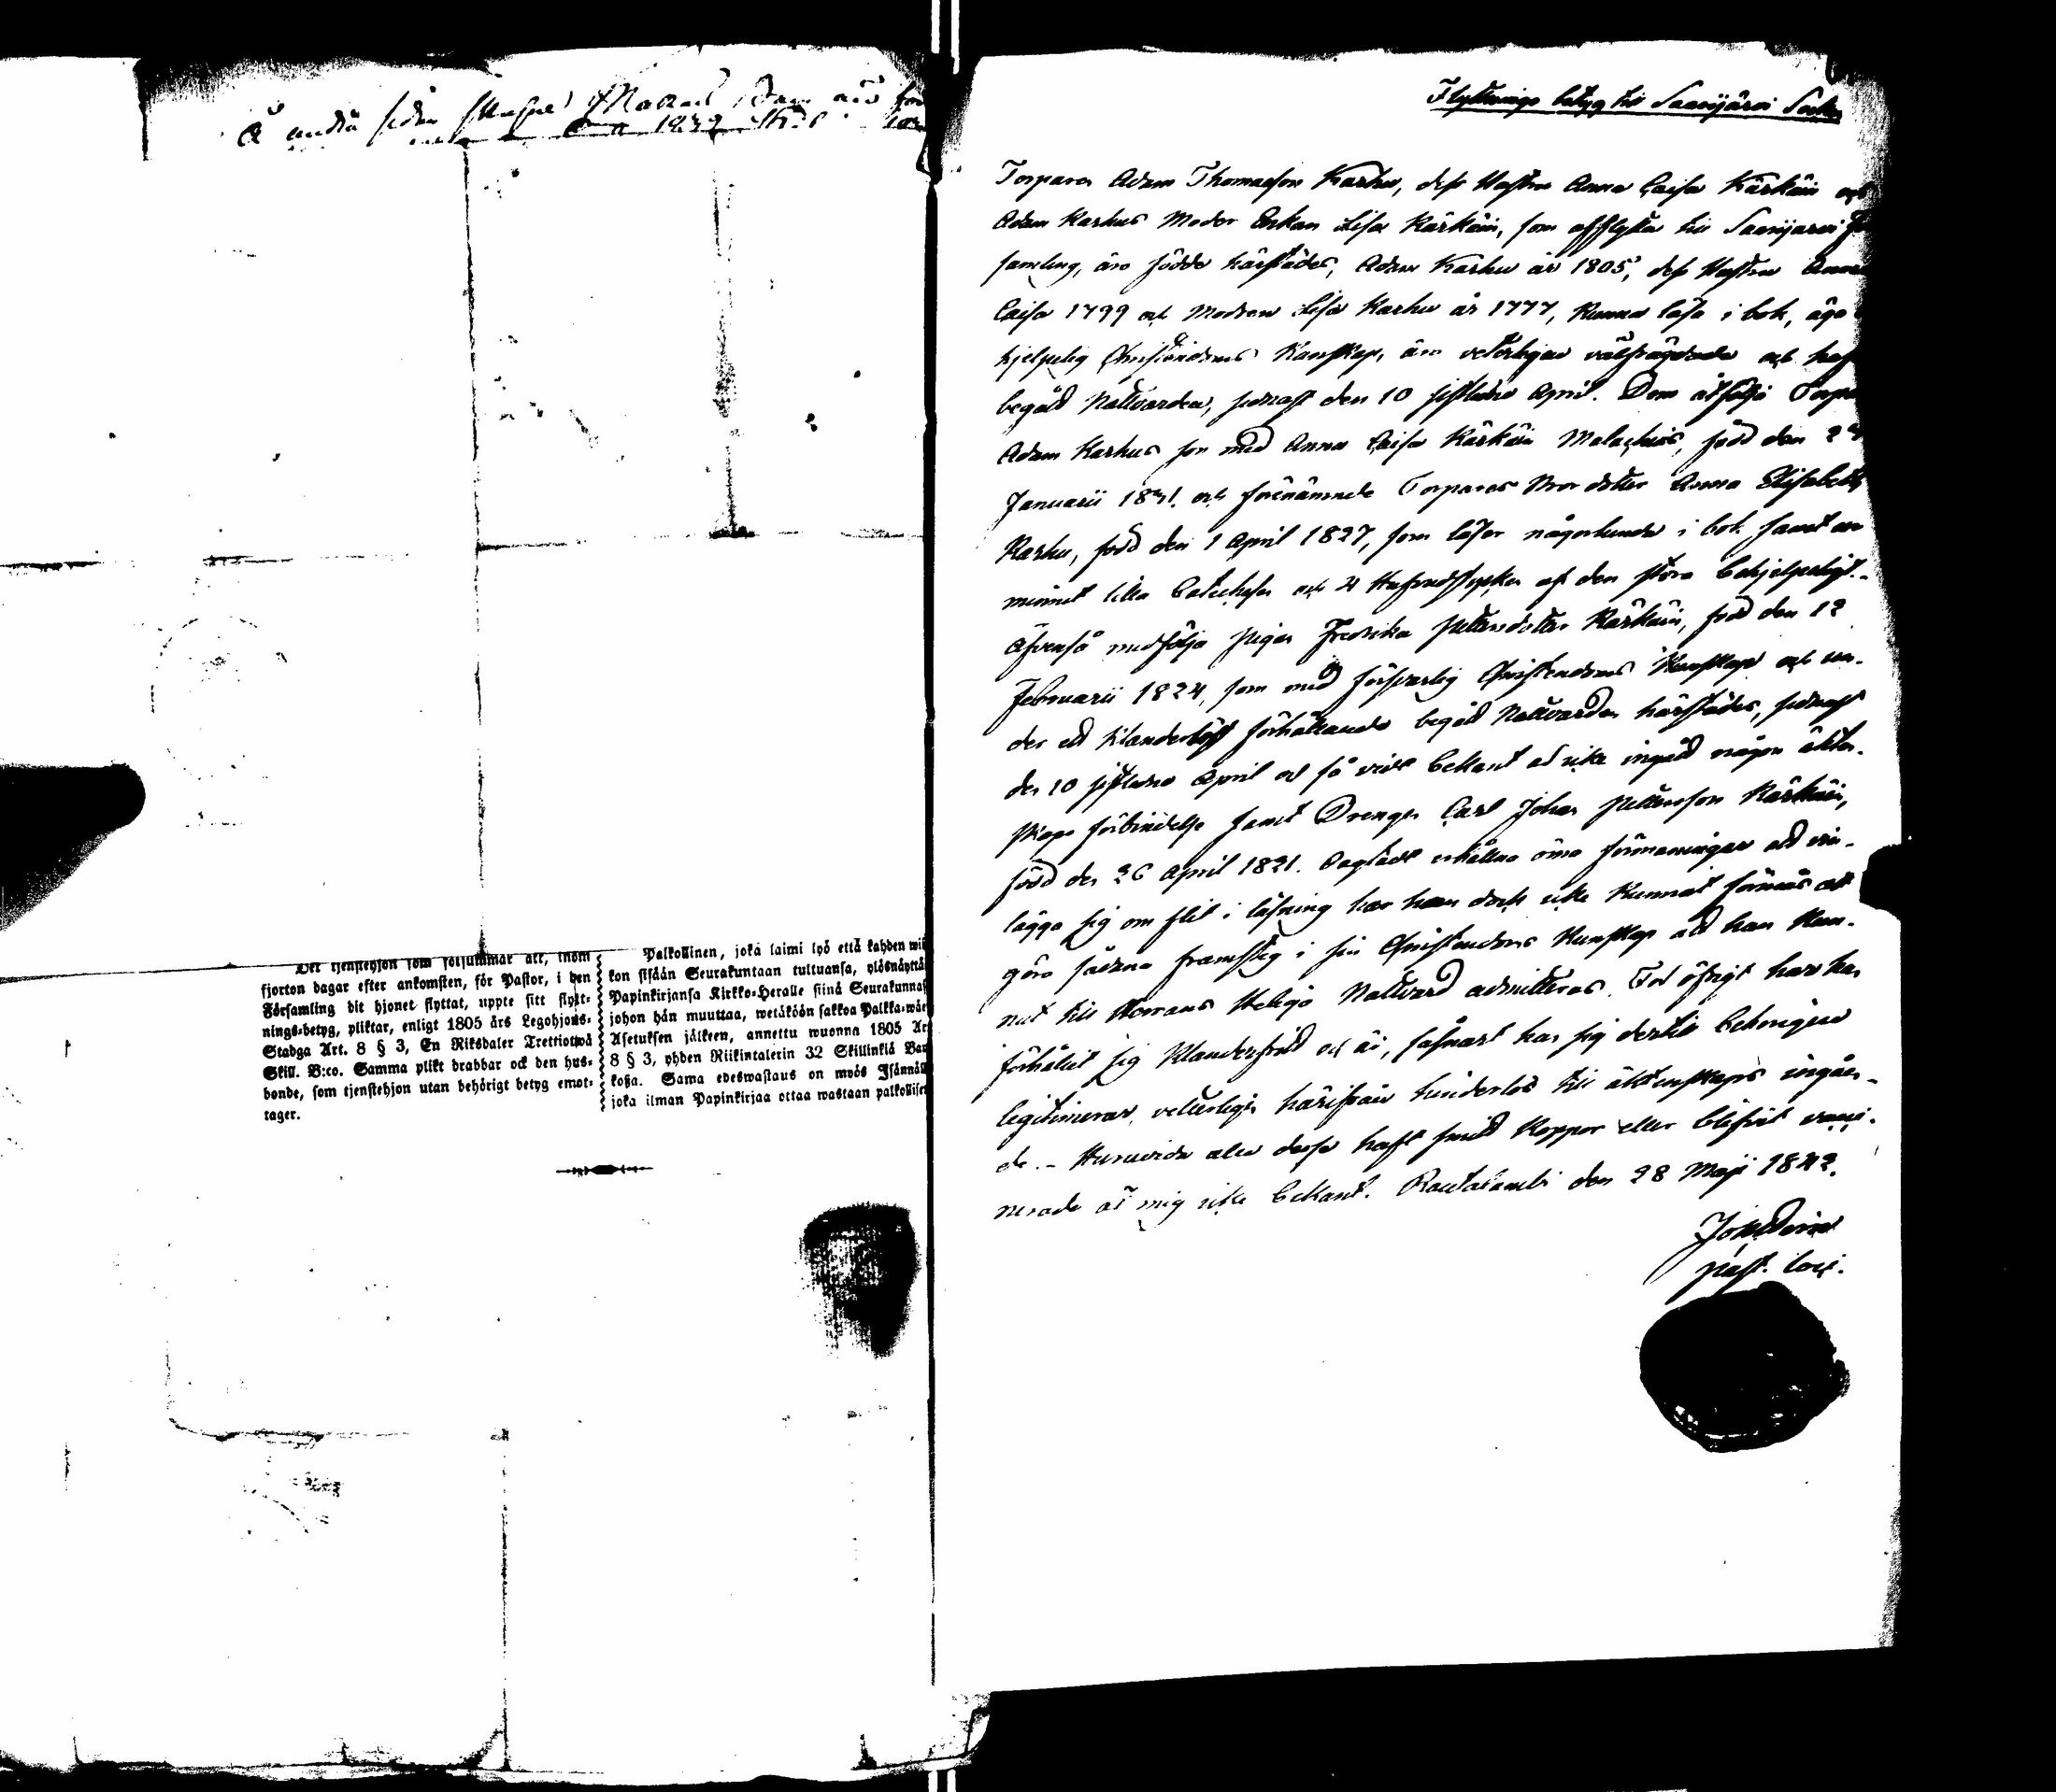 Å andra sidan
Det tjenstehjon som försummar att, inom
fjorton dagar efter ankomsten, för Pastor, i den
Församling dit hjonet flyttat, uppte sitt flytt-
nings-betyg, pliktar, enligt 1805 års Legohjons-
Stadga Art. 8 § 3, En Riksdaler Trettiotwå
Skill. B:co. Samma plikt drabbar ock den hus-
bonde, som tjenstehjon utan behörigt betyg emot-
tager.
Palkollinen, joka laimi lyö että kahden wii
kon sisään Seurakuntaan tultuansa, ylösnäyttä
Papinkirjansa Kirkko-Heralle siinä Seurakunnas
johon hän muuttaa, wetäköön sakkoa Palkka-wäe
Asetuksen jälkeen, annettu wuonna 1805 Ar
8 § 3, yhden Riikintalerin 32 Skillinkiä Ban
kosa. Sama edeswastaus on myös Isännäll
joka ilman Papinkirjaa ottaa wastaan palkollisen
Flyttnings betyg till Saarijärvi Sockn
Torparen Adam Thomasson Karhu, dess Hustru Anna Caisa Kärkäin och
Adam Karhus Moder Enkan Lisa Kärkäin, som afflytta till Saarijärvi För
samling, äro födde härstädes, Adam Karhu år 1805, dess Hustru Anna
Caisa 1799 och Modren Lisa Karhu år 1777, kunna läsa i bok, äga
hjelpelig Christendoms Kunskap, äro veterligen välfrägdade och haf
begått Nattvarden, sednast den 10 sistledne April. Dem åtfölja Torpa
Adam Karhus son med Anna Caisa Kärkäin Malachias, född den
Januarii 1841. och förenämnde Torpares Brordotter Anna Elisabeth
Karhu, född den 1 April 1827, som läser någorlunda i bok samt ur
minnet lilla Catechesen och 4 Hufvudstycken af den stora behjelpeligt.-
Äfvenså medfölja pigan Fredrika Pettersdotter Kärkäin, född den 12
Februarii 1824, som med försvarlig Christendoms Kunskap och un-
der ett klanderlöst förhållande begått Nattvarden härstädes, sednast
den 10 sistledne April och så vidt bekant är icke ingått någon äkten-
skaps förbindelse samt Drengen Carl Johan Pettersson Kärkäin,
född den 26 April 1821. Oagtadt erhållna ömma förmaningar att vin-
lägga sig om flit i läsning har han dock icke kunnat förmås att
göra sådana framsteg i sin Christendoms Kunskap att han kun-
nat till Herrans Heliga Nattvard admitteras. För öfrigt har han
förhållit sig klanderfritt och är, såsnart han sig dertill behörigen
legitimerar, veterligen härifrån hinderlös till äktenskaps ingåen-
de. - Huruvida alla desse haft smått koppor eller blifvit vacci-
nerade är mig icke bekant. Rautalambi den 28 Maji 1842.
past. loci.